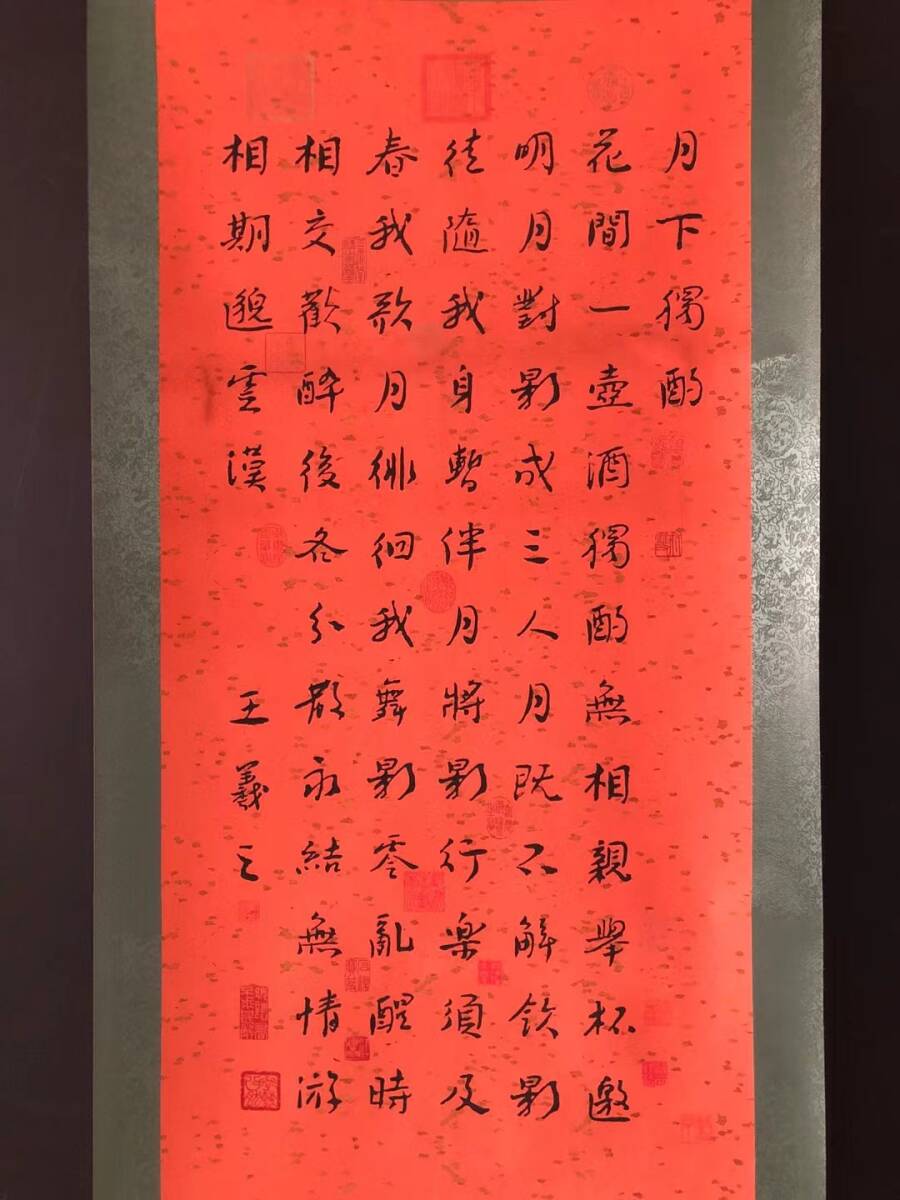 月下獨酌
花間一壺酒獨酌無相親舉杯邀
明月對影成三人月既不解飲影
徒隨我身暫伴月將影行樂須及
春我歌月徘徊我舞影零亂醒時
相交歡醉後各分散永結無情游
相期邈雲漢
王羲之